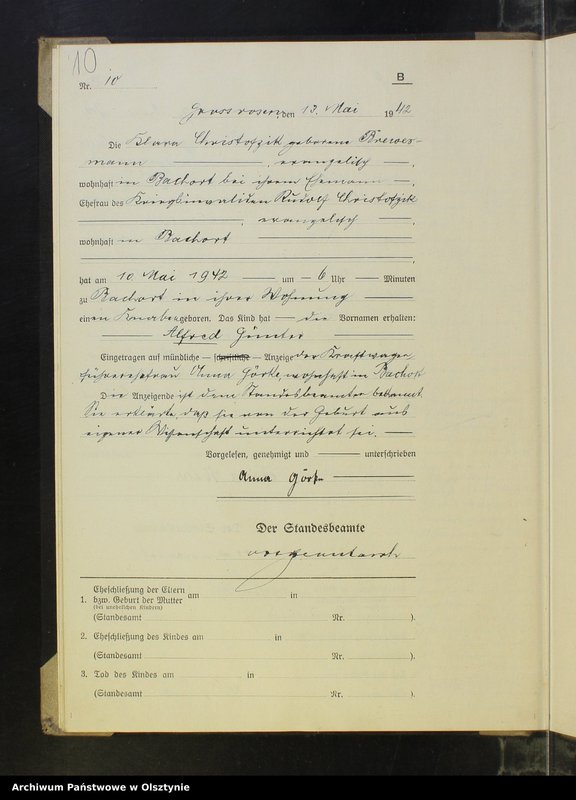 10
Nr. 10
B
Grossrosen, den 13. Mai 1942
Die Klara Christofzik geborene Brewes-
mann, evangelisch,
wohnhaft in Bachort bei ihrem Ehemann,
Ehefrau des Kriegsinvaliden Rudolf Christofzik
, evangelisch,
wohnhaft in Bachort
,
hat am 10. Mai 1942 um 6 Uhr Minuten
zu Bachort in ihrer Wohnung
einen Knaben geboren. Das Kind hat die Vornamen erhalten:
Alfred Günter
Eingetragen auf mündliche — schriftliche — Anzeige der Kraftwagen-
führerehefrau Anna Görke, wohnhaft in Bachort
Die Anzeigende ist dem Standesbeamten bekannt.
Sie erklärte, daß sie von der Geburt aus
eigener Wissenschaft unterrichtet sei.
Vorgelesen, genehmigt und unterschrieben
Anna Görke
Der Standesbeamte
1. Eheschließung der Eltern
bzw. Geburt der Mutter am in
(bei unehelichen Kindern)
(Standesamt Nr. ).
2. Eheschließung des Kindes am in
(Standesamt Nr. ).
3. Tod des Kindes am in
(Standesamt Nr. ).
Archiwum Państwowe w Olsztynie